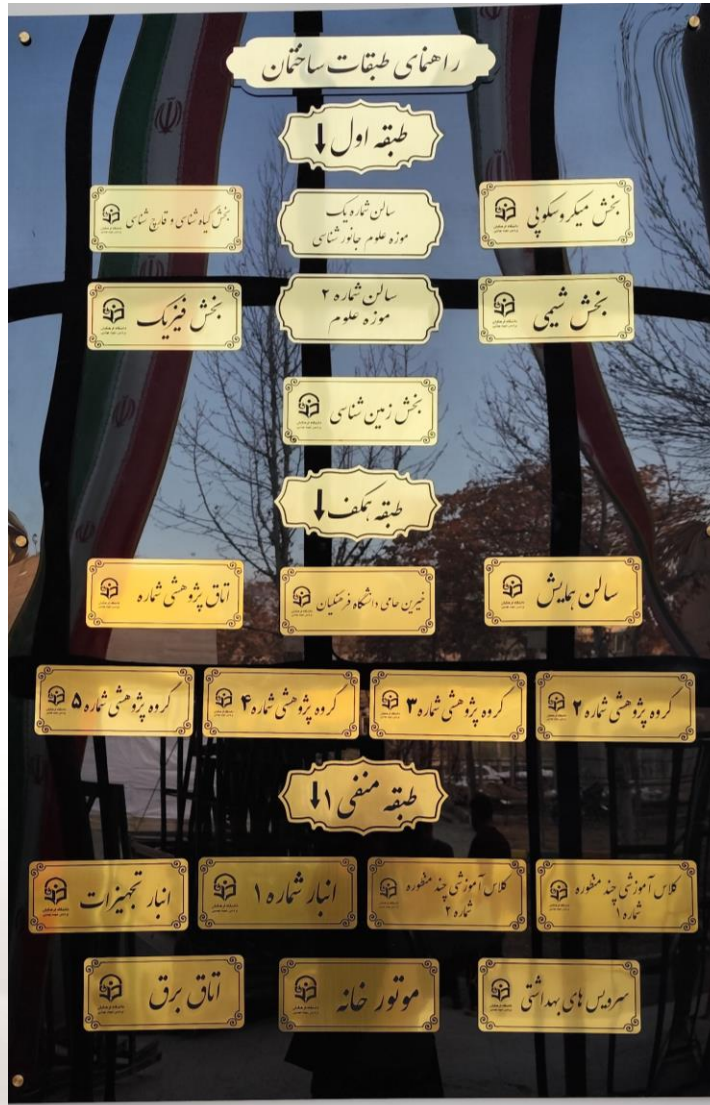 راهنمای طبقات ساختمان
طبقه اول ↓
بخش میکروسکوپی
سالن شماره یک
موزه علوم جانور شناسی
بخش گیاه شناسی و قارچ شناسی
بخش شیمی
سالن شماره ۲
موزه علوم
بخش فیزیک
بخش زمین شناسی
طبقه همکف ↓
سالن همایش
خیرین حامی دانشگاه فرهنگیان
اتاق پژوهشی شماره
گروه پژوهشی شماره ۲
گروه پژوهشی شماره ۳
گروه پژوهشی شماره ۴
گروه پژوهشی شماره ۵
طبقه منفی ۱ ↓
کلاس آموزشی چند منظوره
شماره ۱
کلاس آموزشی چند منظوره
شماره ۲
انبار شماره ۱
انبار تجهیزات
سرویس های بهداشتی
موتور خانه
اتاق برق